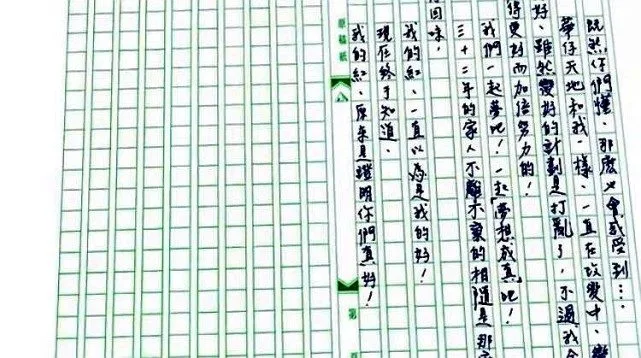 既然你們懂，那麼也會感受到…
華仔天地和我一樣、一直在改變中、變
好、雖然變好的計劃是打亂了，不過我
得更好而加倍努力的！
我們一起夢吧！一起「夢想成真」吧！
三十二年的家人不離不棄的相隨是那
回味，
我的紅、一直以為是我的好！
現在終于知道、
我的紅、原來是證明你們真好！
原稿紙
第